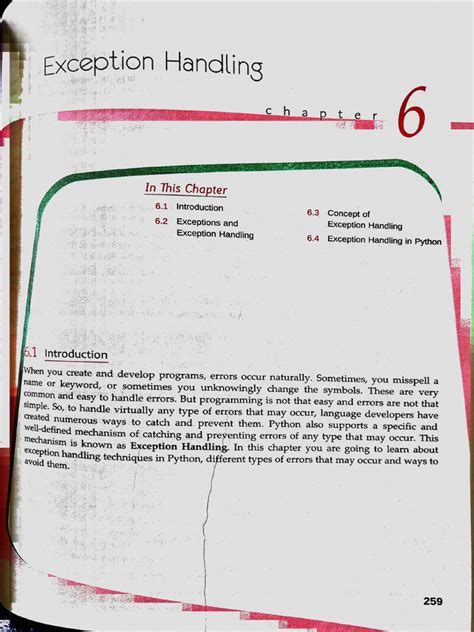 Exception Handling
chapter 6
In This Chapter
6.1 Introduction
6.2 Exceptions and
Exception Handling
6.3 Concept of
Exception Handling
6.4 Exception Handling in Python
6.1 Introduction
When you create and develop programs, errors occur naturally. Sometimes, you misspell a
name or keyword, or sometimes you unknowingly change the symbols. These are very
common and easy to handle errors. But programming is not that easy and errors are not that
simple. So, to handle virtually any type of errors that may occur, language developers have
created numerous ways to catch and prevent them. Python also supports a specific and
well-defined mechanism of catching and preventing errors of any type that may occur. This
mechanism is known as Exception Handling. In this chapter you are going to learn about
exception handling techniques in Python, different types of errors that may occur and ways to
avoid them.
259